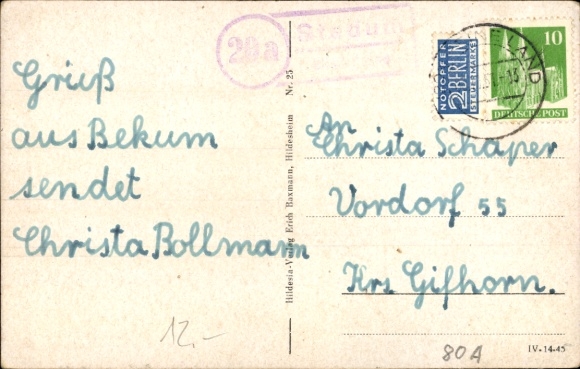 Gruß
aus Bekum
sendet
Christa Bollmann
12,-
Hildesia-Verlag Erich Baxmann, Hildesheim Nr. 25
20a
NOTOPFER
2 BERLIN
STEUERMARKE
10
DEUTSCHE POST
LAND
An
Christa Schaper
Vordorf 55
Krs. Gifhorn.
80A
IV-14-45